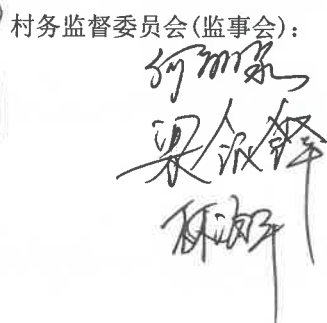 村务监督委员会(监事会):
何
梁银锋
林